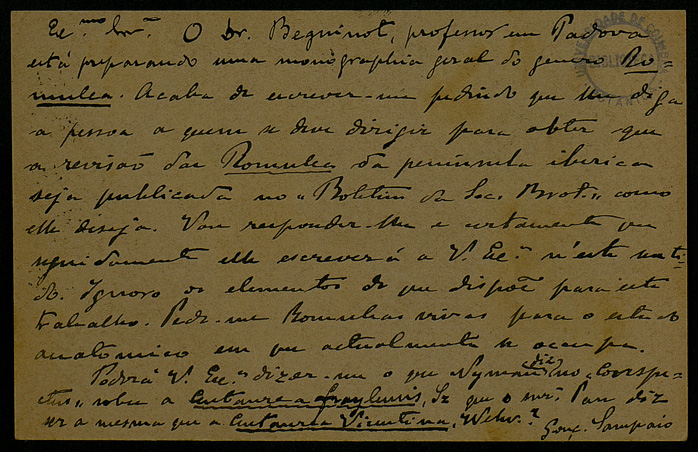 Ex.mo Snr. O Dr. Beguinot, professor em Padova
está preparando uma monographia geral do genero Ro=
mulea. Acaba de escrever-me pedindo que lhe diga
a pessoa a quem se deve dirigir para obter que
a revisão das Romulea da peninsula iberica
seja publicada no "Boletim da Soc. Brot.", como
elle diseja. Vou responder-lhe e certamente que
seguidamente elle escreverá a V. Ex.a n'este senti-
do. Ignoro os elementos de que dispõe para este
trabalho. Pede-me Romuleas vivas para o estudo
anatomico em que actualmente se occupa.
Poderá V. Ex.a dizer-me o que Nyman diz no "Conspe-
ctus" sobre a Centaurea fraylensis, Sz que o snr. Pau diz
ser a mesma que a Centaurea Vicentina, Welw.?
Gonç. Sampaio
UNIVERSIDADE DE COIMBRA